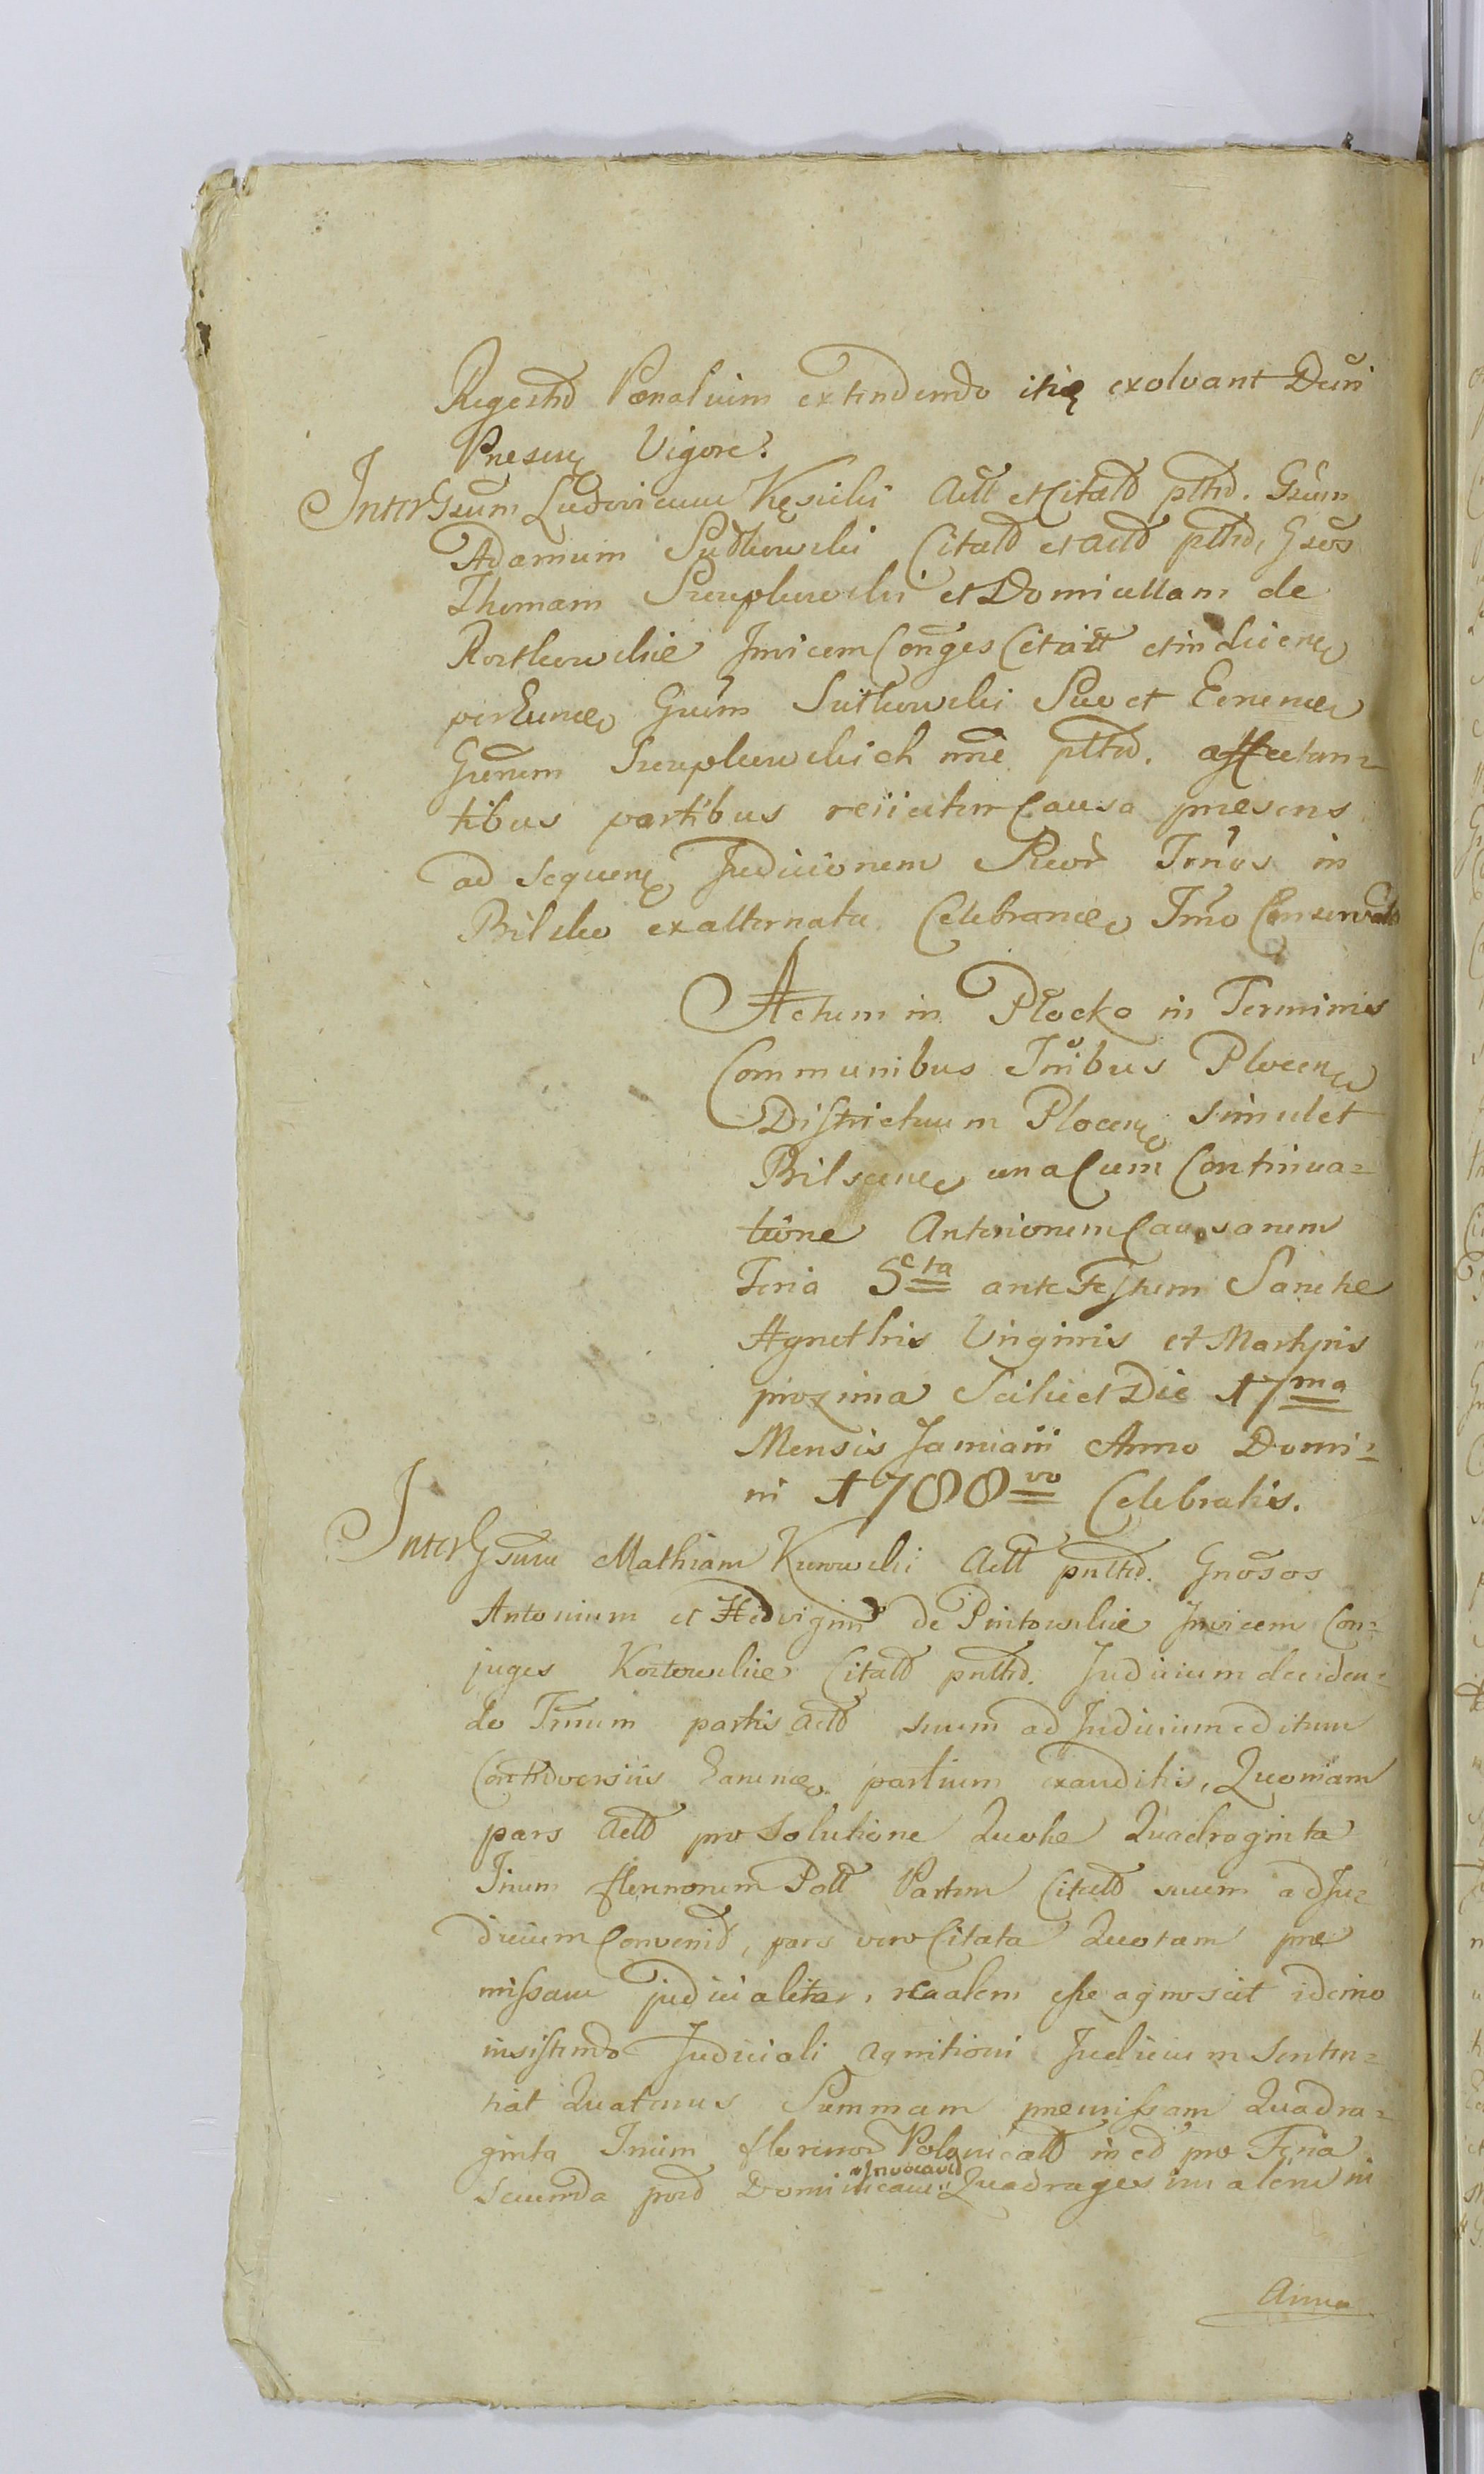 Regestro Poenalium extendendo itiq exolvant Dcri
Presen Vigore.
Inter Gsum Ludovicum Actt et Citato ptto. Gsum
Adamum Sutkowski Citato et Acto ptto, Gsos
Thomam et Domicellam de
Invicem Conges Citatt et inducen
per Gsum Sutkowski Suo et
Gsorum noie ptto. affectan=
tibus partibus reiicitur Causa presens
ad sequen Iudiciorum Suor Trnos in
Bilsko ex alternata Celebran Trno Conservato
Actum in Płocko in Terminis
Communibus Trribus Plocen
Districtuum Plocen simulet
Bilscen una Cum Continua=
tione Anteriorum Causarum
Feria 5cta ante Festum Sanctae
Agnethis Virginis et Martyris
proxima Scilicet Die 17ma
Mensis Januarii Anno Domi=
ni 1788vo Celebratis.
Inter Gsum Mathiam Actt pntto. Gnosos
Antonium et Hedvigim de Invicem Con=
juges Citato pntto. Iudicium deciden=
do Trnum partis Acto suum ad Iudicium editum
Controversiis Earun partium exauditis, Quoniam
pars Acto pro Solutione Quotae Quadraginta
Trium florenorum Poll Partem Citato suum ad Ju=
dicium Convenit, pars vero Citata Quotam prae
missam judicialiter, realem esse agnoscit ideirco
insistendo Judiciali agnitioni Judicium Senten=
tiat Quatenus Summam praemissam Quadra=
ginta Trium florenor Polonicalt in et pro Feria
Secunda post Dominicam Invocavit Quadragesimalem in
Anno